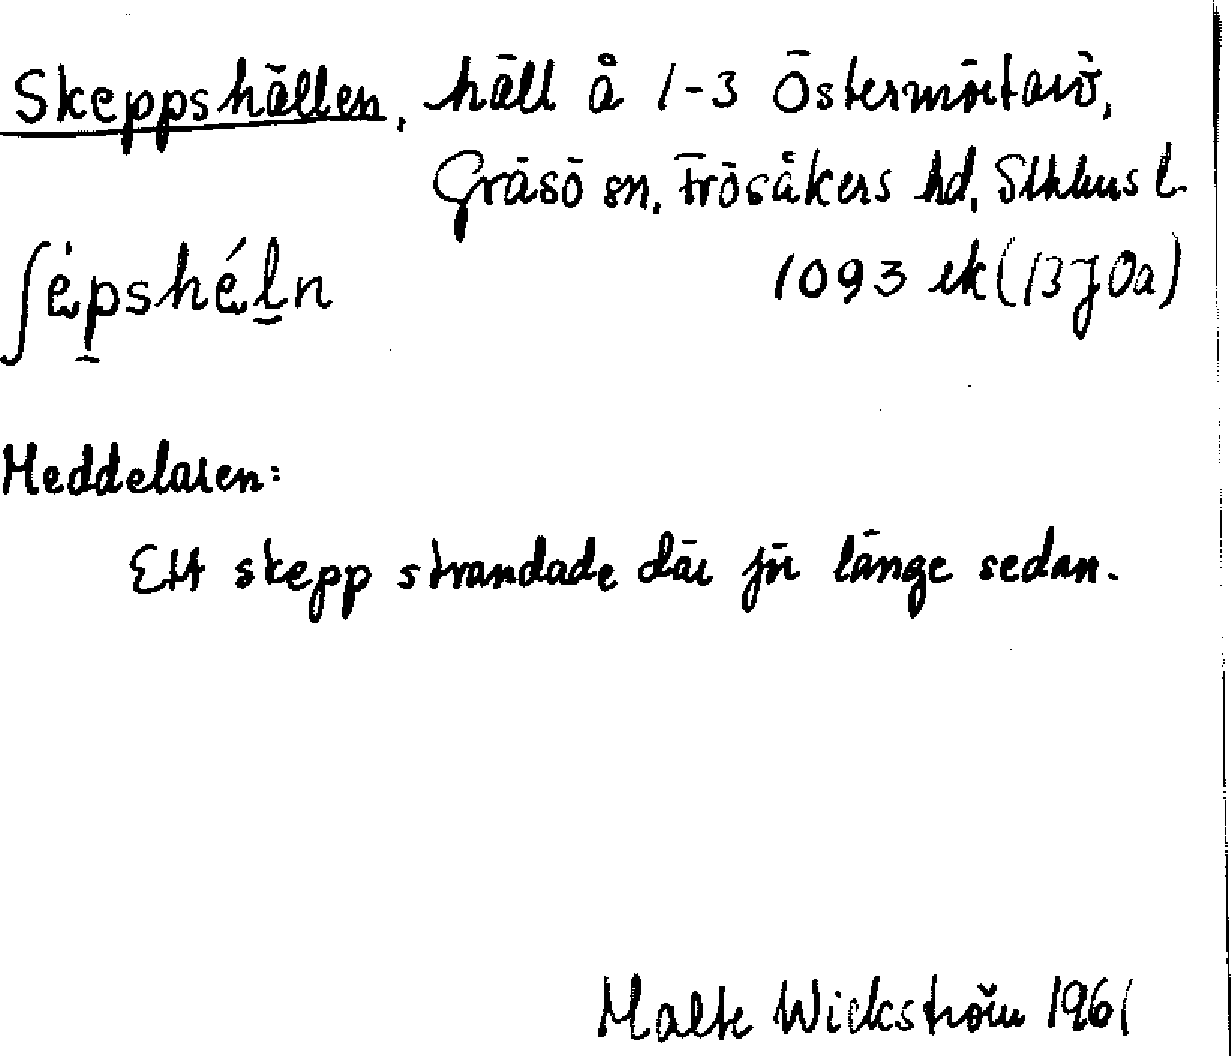 Skeppshällen, häll å 1-3 Östermörtarö,
Gräsö sn, Frösåkers hd, Sthlms l.
ʃèpshéln
1093 ek (13J0a)
Meddelaren:
Ett skepp strandade där för länge sedan.
Malte Wickström 1961